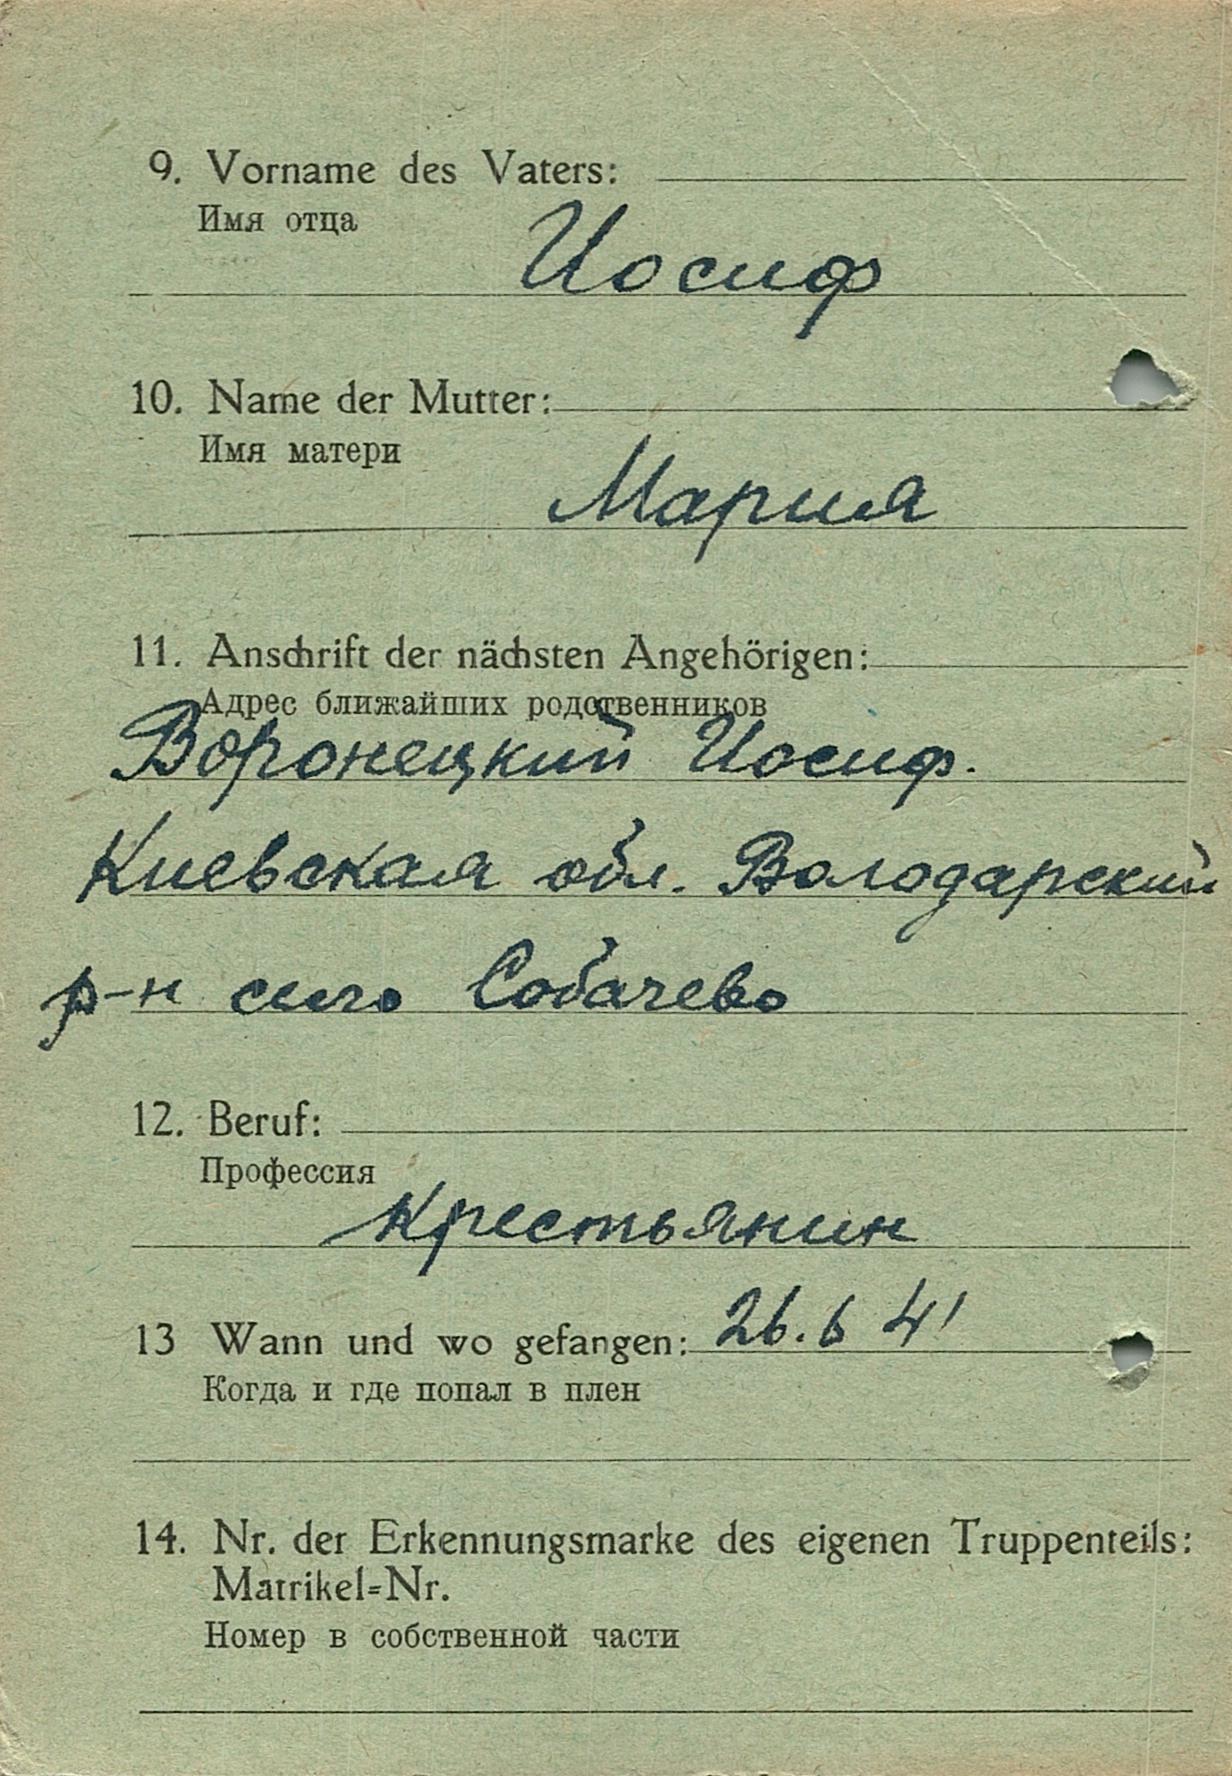 9. Vorname des Vaters:
Имя отца
Иосиф
10. Name der Mutter:
Имя матери
Мария
11. Anschrift der nächsten Angehörigen:
Адрес ближайших родственников
Воронецкий Иосиф.
Киевская обл. Володарский
р-н село Собачево
12. Beruf:
Профессия
Крестьянин
13 Wann und wo gefangen: 26.6 41
Когда и где попал в плен
14. Nr. der Erkennungsmarke des eigenen Truppenteils:
Matrikel=Nr.
Номер в собственной части